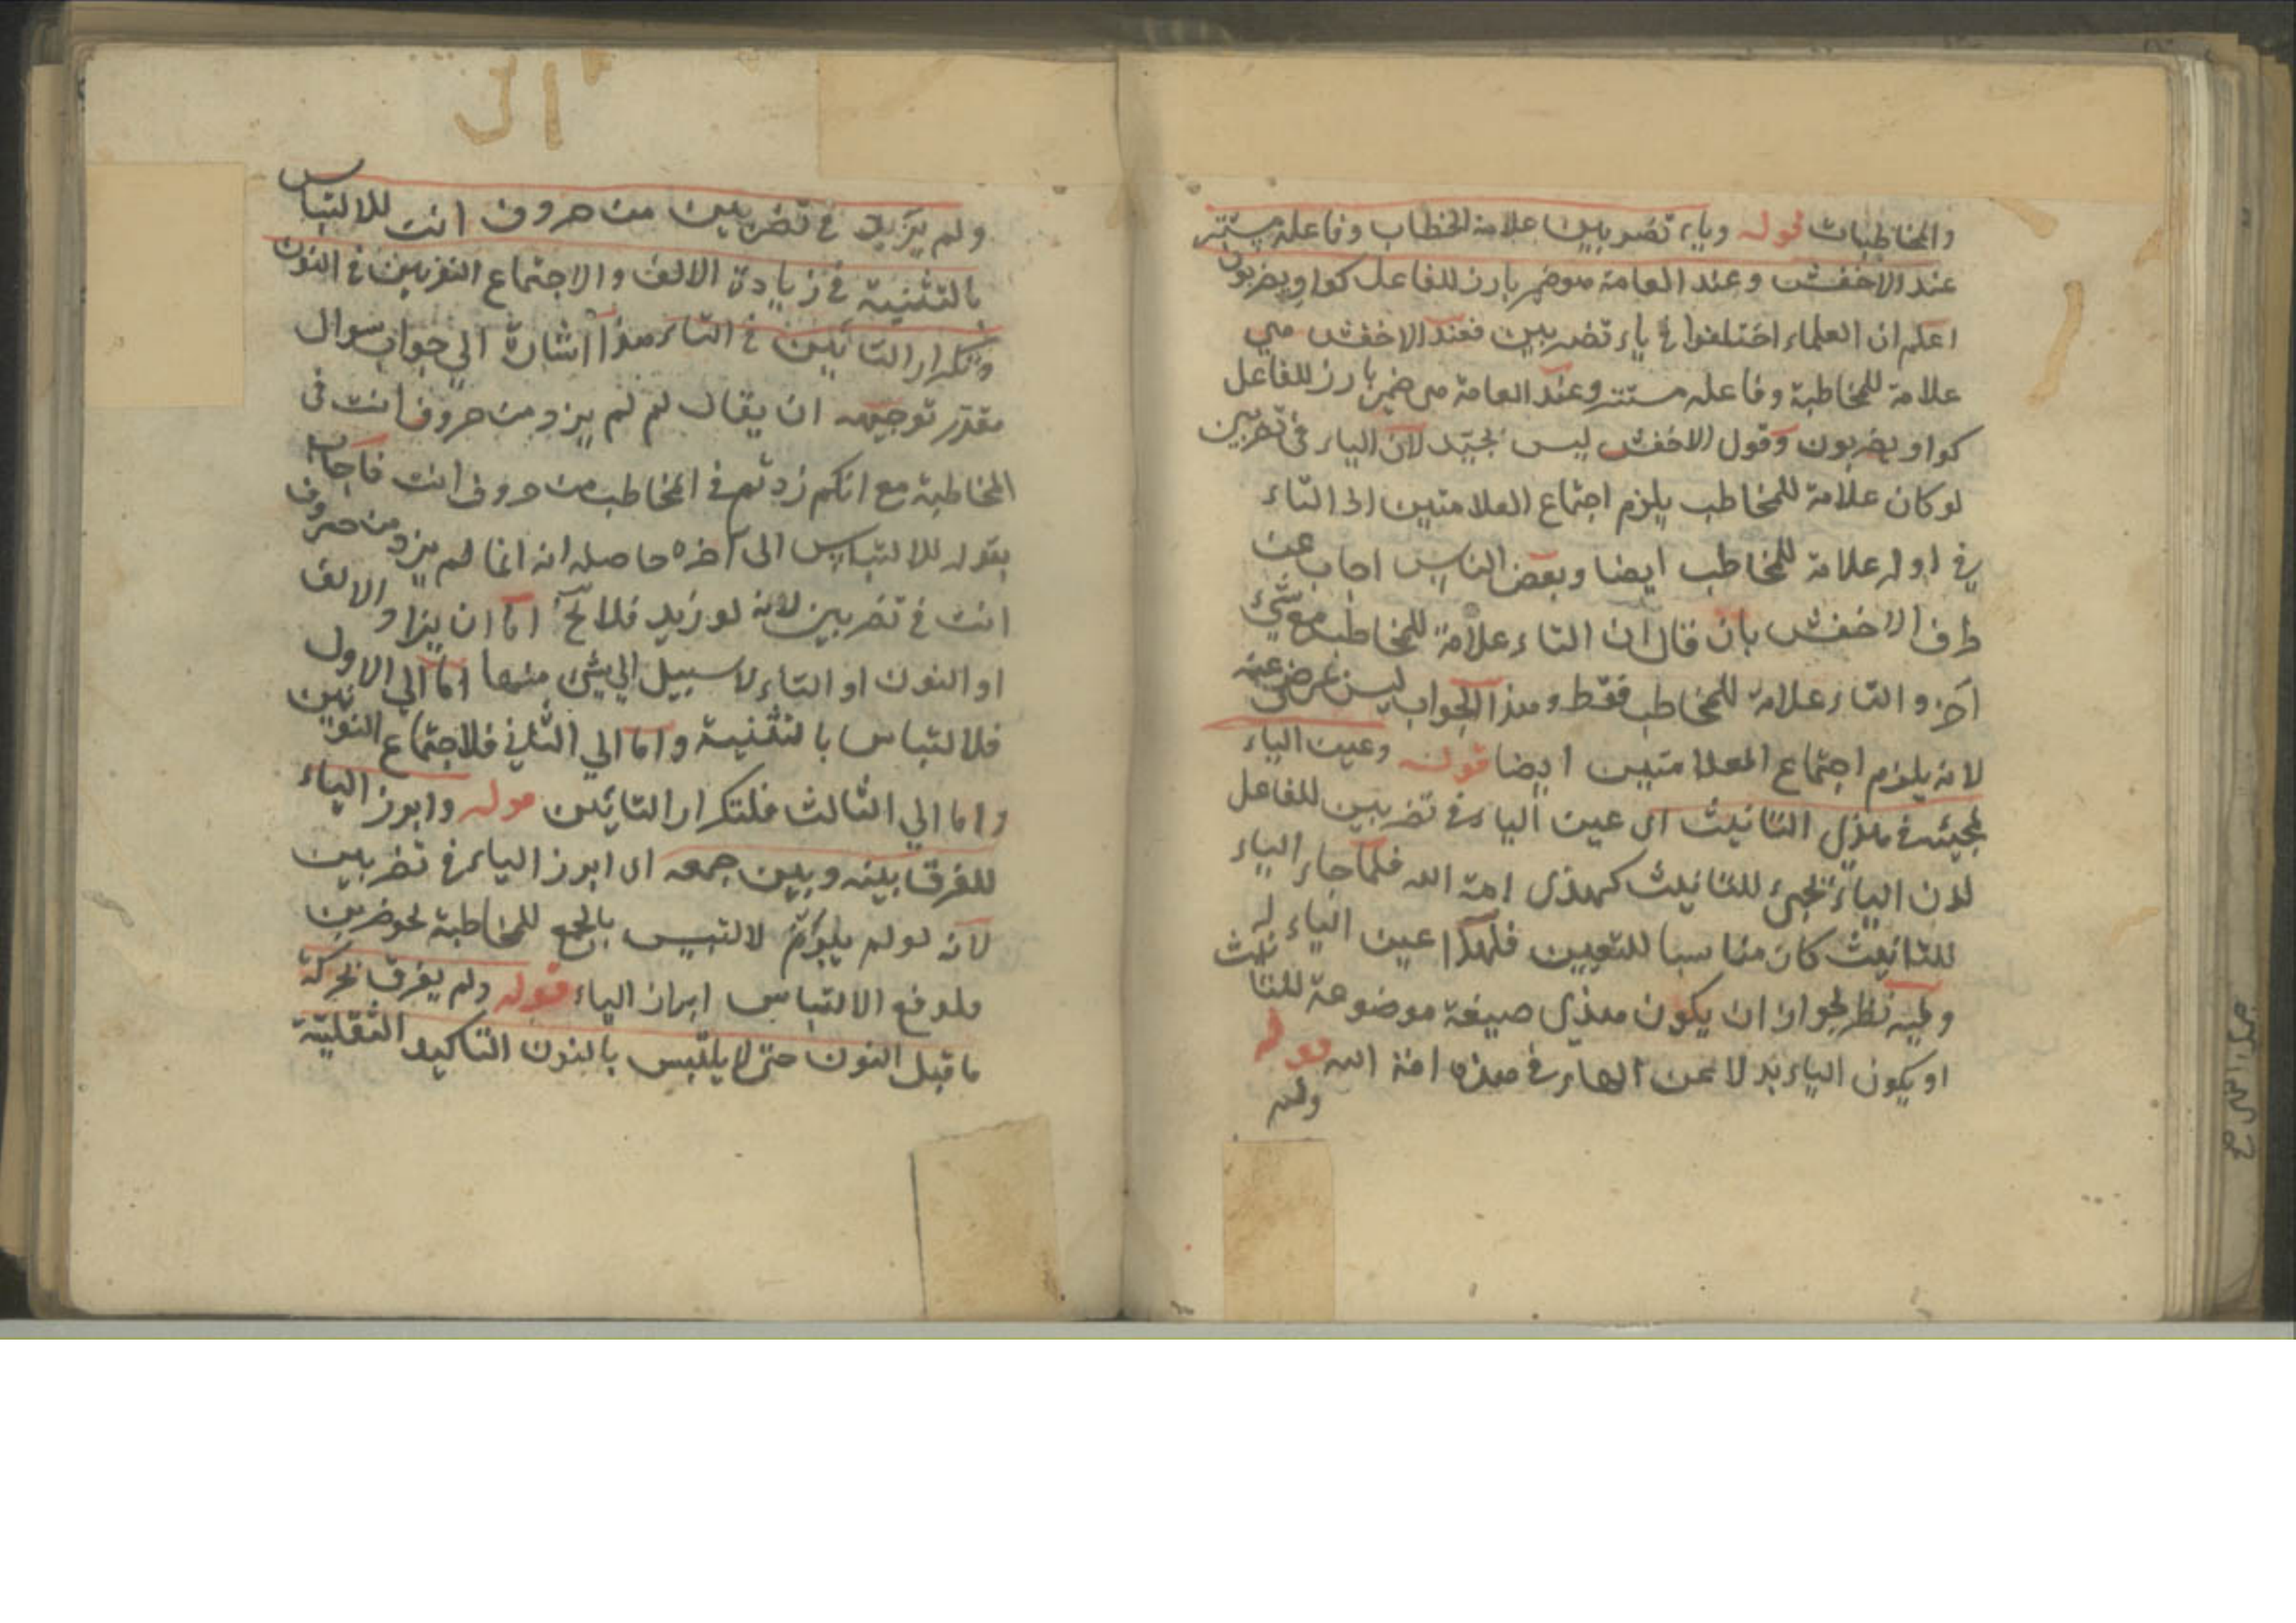 والمخاطبات قوله وياء تضربين علامة الخطاب وفاعله مستتر
عند الاخفش وعند العامة هو ضمير بارز للفاعل كواو يضربون
اعلم ان العلماء اختلفوا في ياء تضربين فعند الاخفش هي
علامة للمخاطبة وفاعله مستتر وعند العامة هي ضمير بارز للفاعل
كواو يضربون وقول الاخفش ليس بجيّد لان الياء في تضربين
لو كان علامة للمخاطب يلزم اجتماع العلامتين اذ التاء
في اوله علامة للمخاطب ايضا وبعض الناس اجاب عن
طرف الاخفش بان قال ان التاء علامة للمخاطب مع شيء
آخر والتاء علامة للمخاطب فقط وهذا الجواب ليس بمرضي
لانه يلزم اجتماع العلامتين ايضا قوله وعين الياء
لمجيئه في هذي التانيث اى عين الياء في تضربين للفاعل
لان الياء تجيء للتانيث كهذى امة الله فلما جاء الياء
للتانيث كان مناسبا للتعيين فلهذا عين الياء له
وفيه نظر لجواز ان يكون هذى صيغة موضوعة للتانيث
او يكون الياء بدلا عن الهاء في هذه امة الله قوله
ولم
ولم يزيد في تضربين من حروف انت للالتباس
بالتثنية في زيادة الالف والاجتماع النونين في النون
وتكرار التائين في التاء هذا اشارة الي جواب سوال
مقدّر توجيهه ان يقال لم لم يزد من حروف انت فى
المخاطبة مع انكم زدتم في المخاطب من حروف انت فاجاب
بقوله للالتباس الى آخره حاصله انه انما لم يزد من حروف
انت في تضربين لانه لو زيد فلا يخ اما ان يزاد الالف
او النون او التاء لا سبيل الي شئ منها اما الي الاول
فلالتباس بالتثنية واما الي الثاني فلاجتماع النونين
واما الي الثالث فلتكرار التائين قوله وابرز الياء
للفرق بينه وبين جمعه اى ابرز الياء في تضربين
لانه لو لم يبرز لالتبس بالجمع للمخاطبة نحو تضربن
فلدفع الالتباس ابراز الياء قوله ولم يفرق بحركة
ما قبل النون حتى لا يلتبس بالنون التاكيد الثقلية